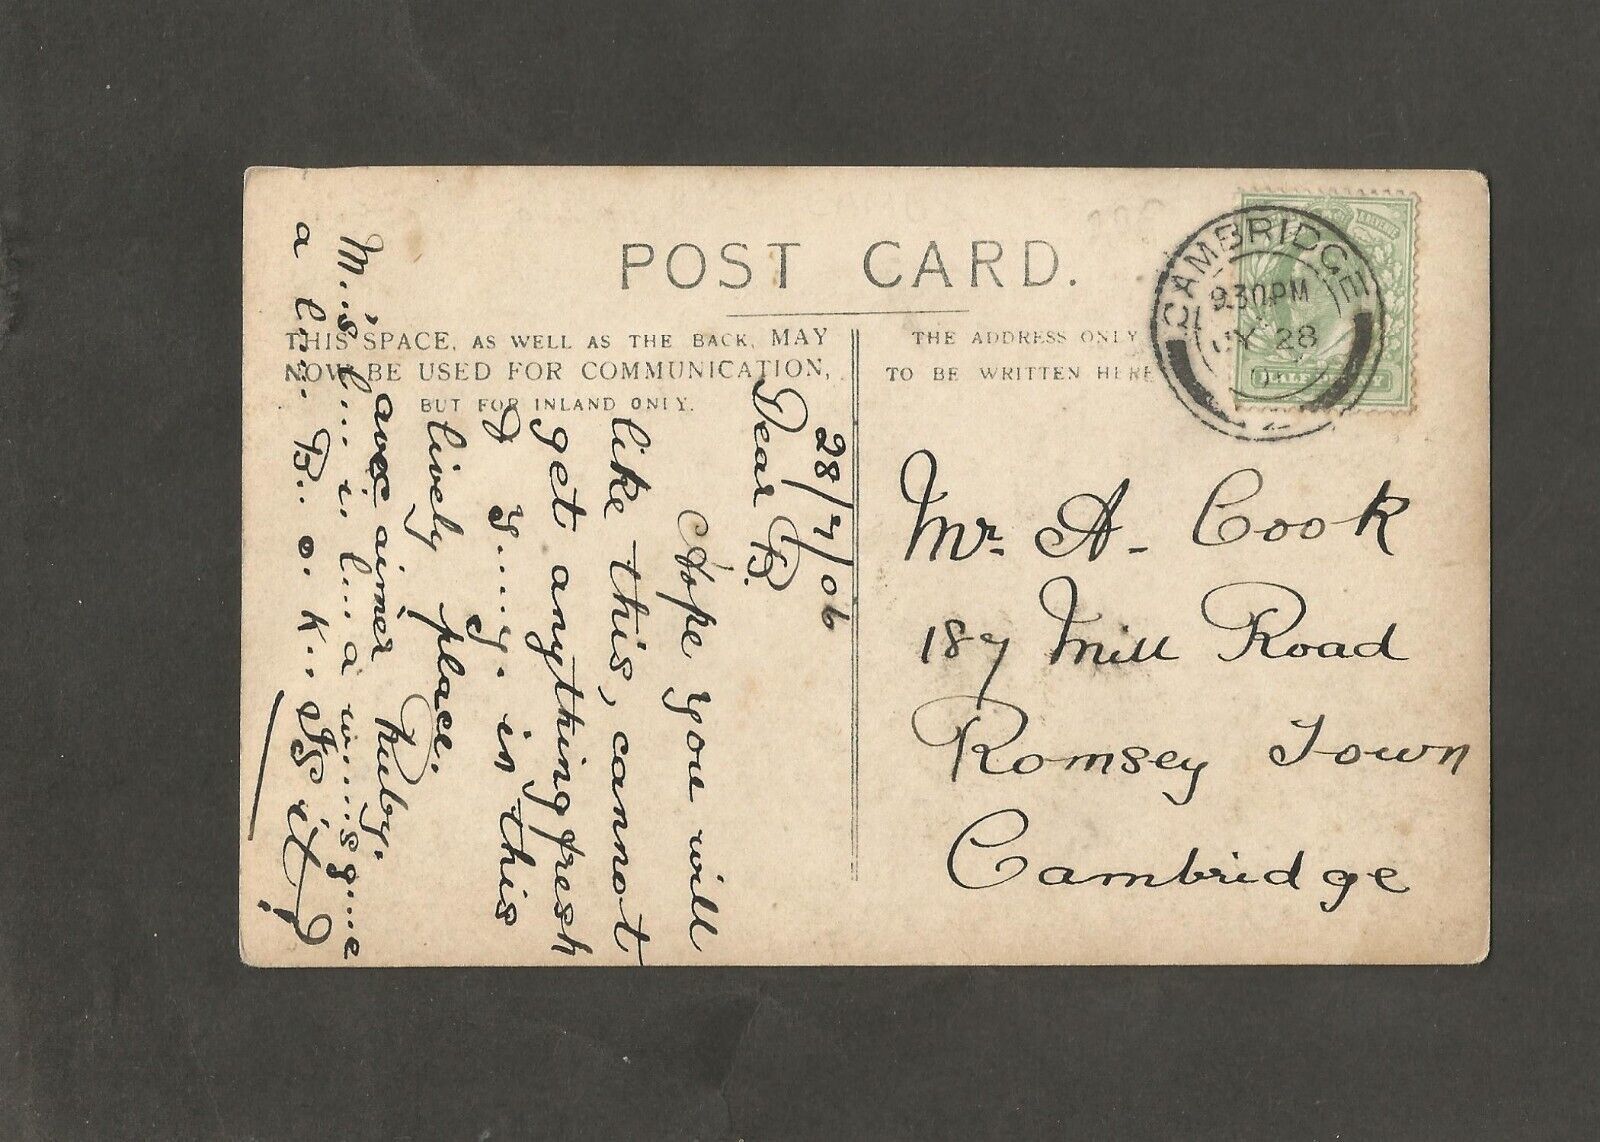 POST CARD.
THIS SPACE, AS WELL AS THE BACK, MAY
NOW BE USED FOR COMMUNICATION,
BUT FOR INLAND ONLY.
THE ADDRESS ONLY
TO BE WRITTEN HERE
CAMBRIDGE
9.30PM
JY 28
HALF PENNY
28/7/06
Dear B.
Hope you will
like this, cannot
get anything fresh
y.....y. in this
lively place.
Ruby.
M...is l... is l...a w....s g...e
a l... B.. o. k.. Is it?!
Mr. A. Cook
187 Mill Road
Romsey Town
Cambridge